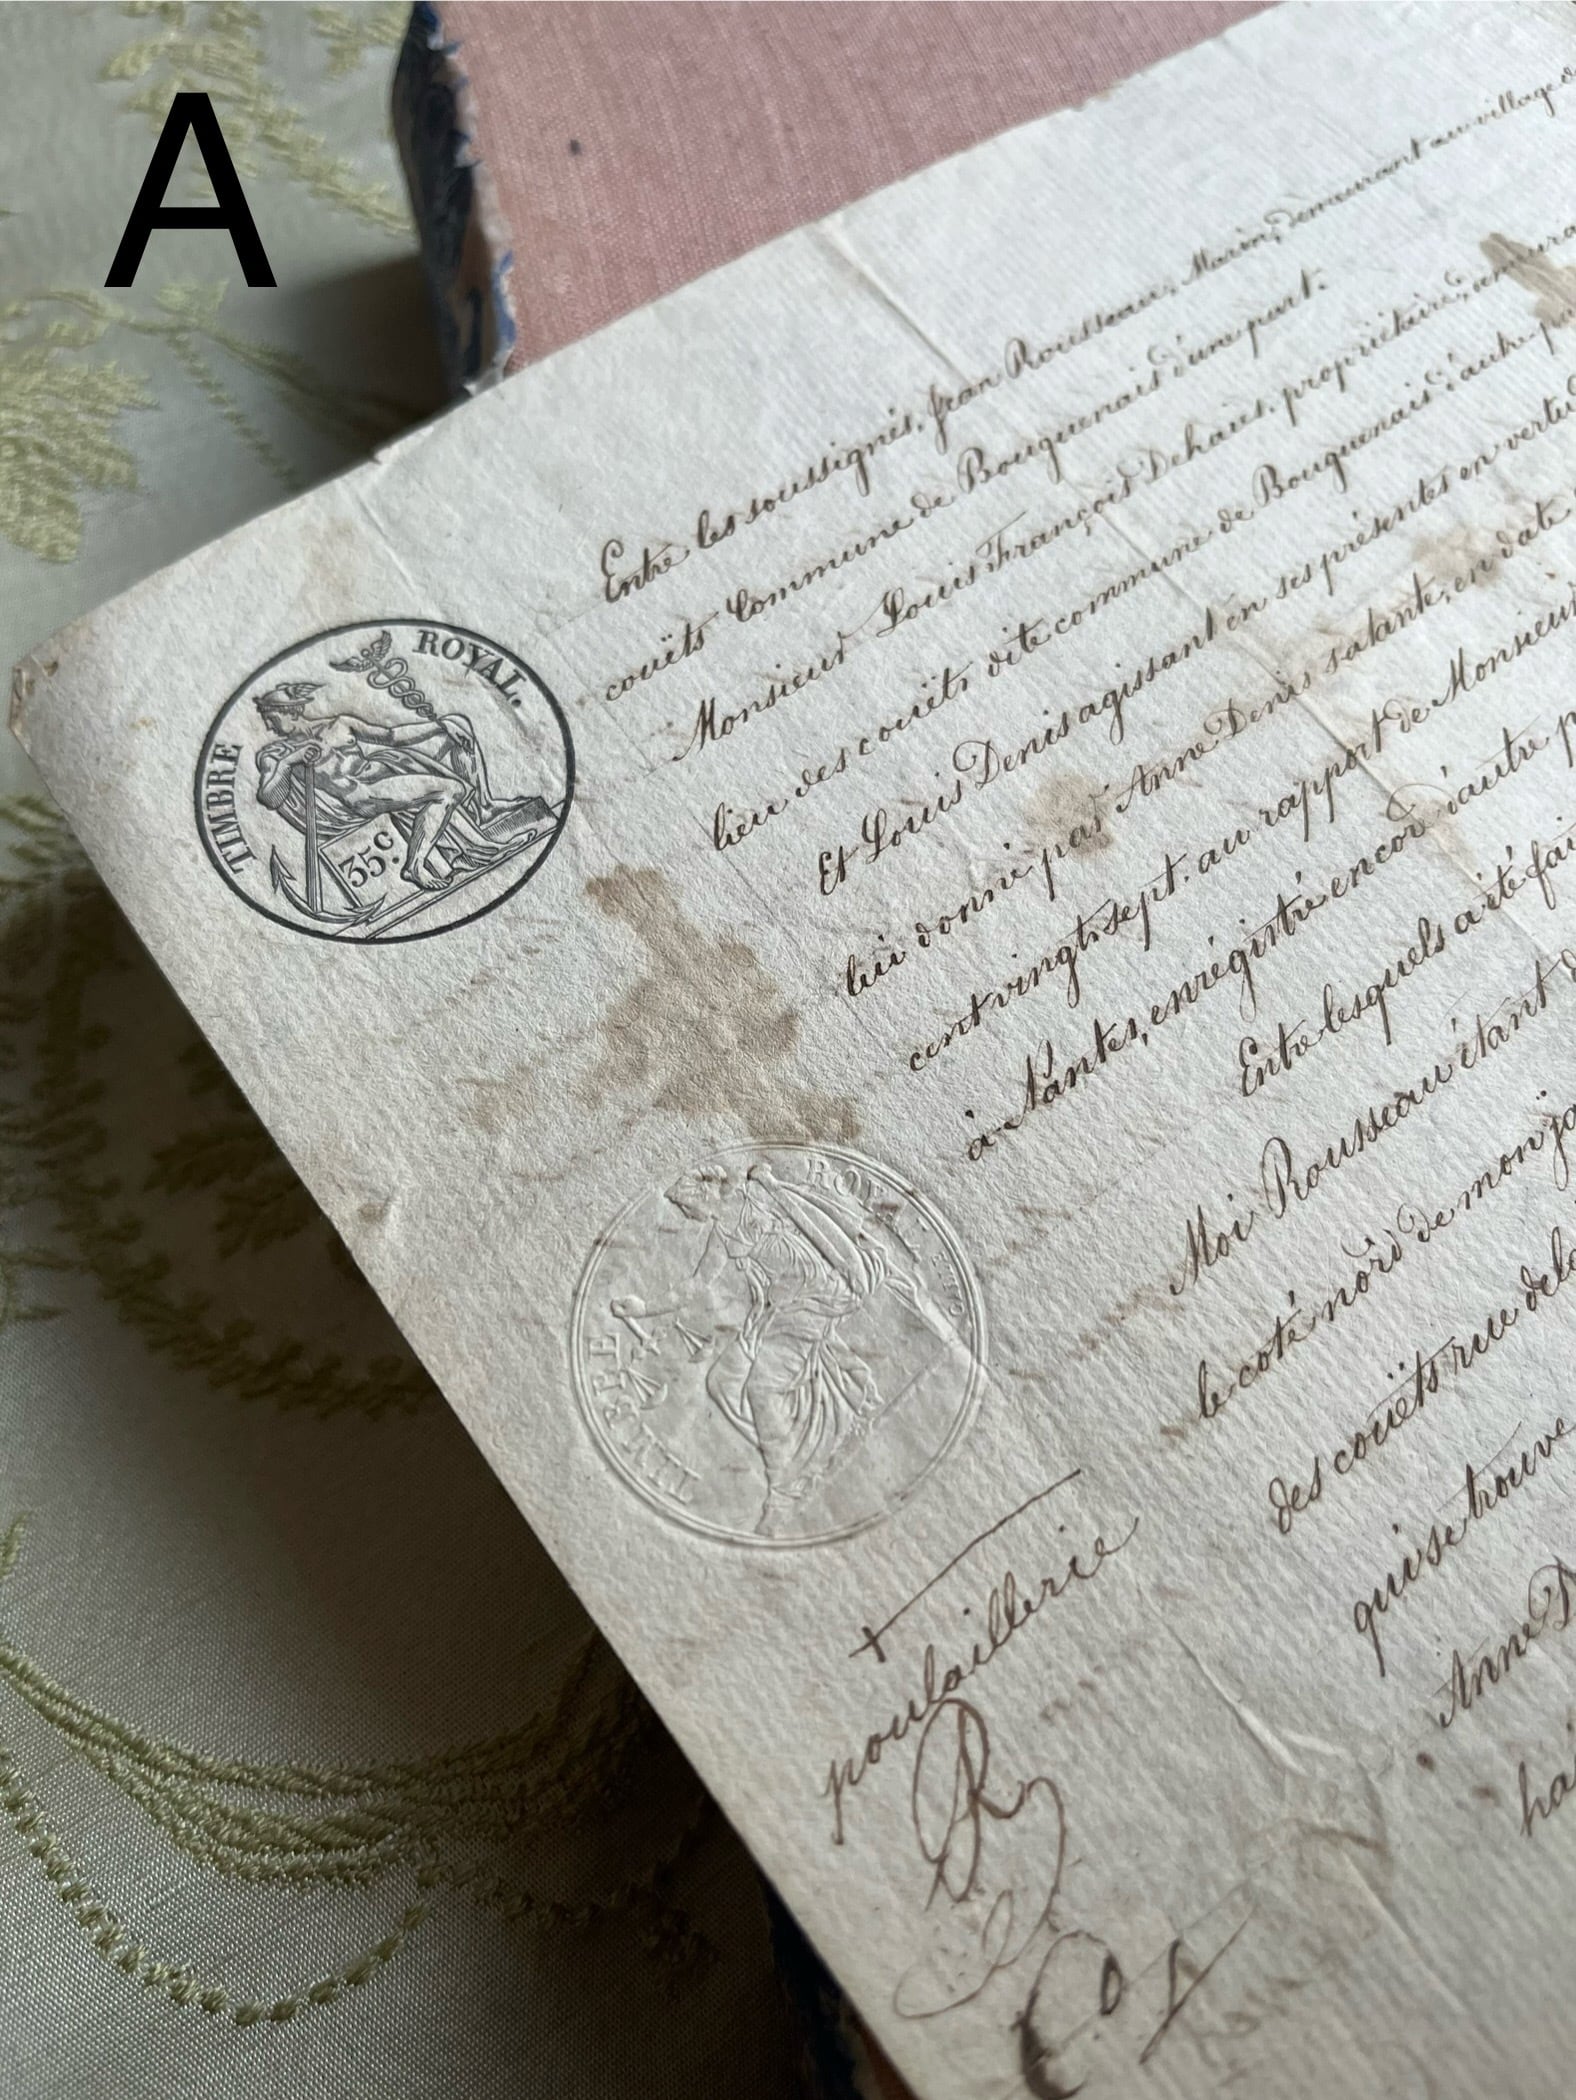 A
Entre les soussignés, Jean Rousseau, Marin, demeurant au village d
couëts Commune de Bouguenais d'une part.
Monsieur Louis François Dehaies, propriétaire,
lieu des couëts dite commune de Bouguenais d'autre
Et Louis Denis agissant en ses présentes en vertu
lui donné par Anne Denis sa tante, en date
cent vingt sept. au rapport de Monsieur
à Nantes, enrégistré encor d'autre p
Entre lesquels a été fai
Moi Rousseau étant
le coté nord de mon ja
des couëts rue dela
qui se trouve
Anne D
hai
TIMBRE ROYAL.
35 c.
TIMBRE ROYAL
+
poulaillerie
R